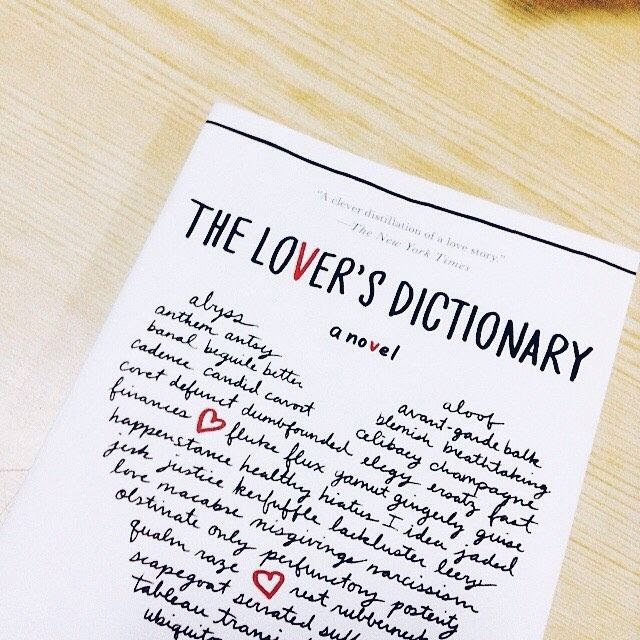 "A clever distillation of a love story."
—The New York Times
THE LOVER'S DICTIONARY
a novel
abyss aloof
anthem antsy avant-garde balk
banal beguile better blemish breathtaking
cadence candid cavort celibacy champagne
covet defunct dumbfounded elegy ersatz fast
finances fluke flux gamut gingerly guise
happenstance healthy hiatus I idea jaded
jerk justice kerfuffle lackluster leery
love macabre misgivings narcissism
obstinate only perfunctory posterity
qualm raze rest
scapegoat serrated
tableau